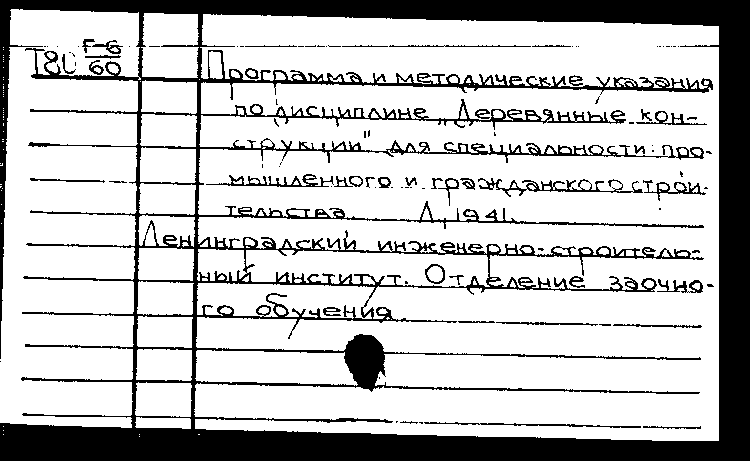 Т80 Г-6/60
Программа и методические указания
по дисциплине „Деревянные кон-
струкции" для специальности: про-
мышленного и гражданского строи-
тельства. Л., 1941.
Ленинградский инженерно-строитель-
ный институт. Отделение заочно-
го обучения.